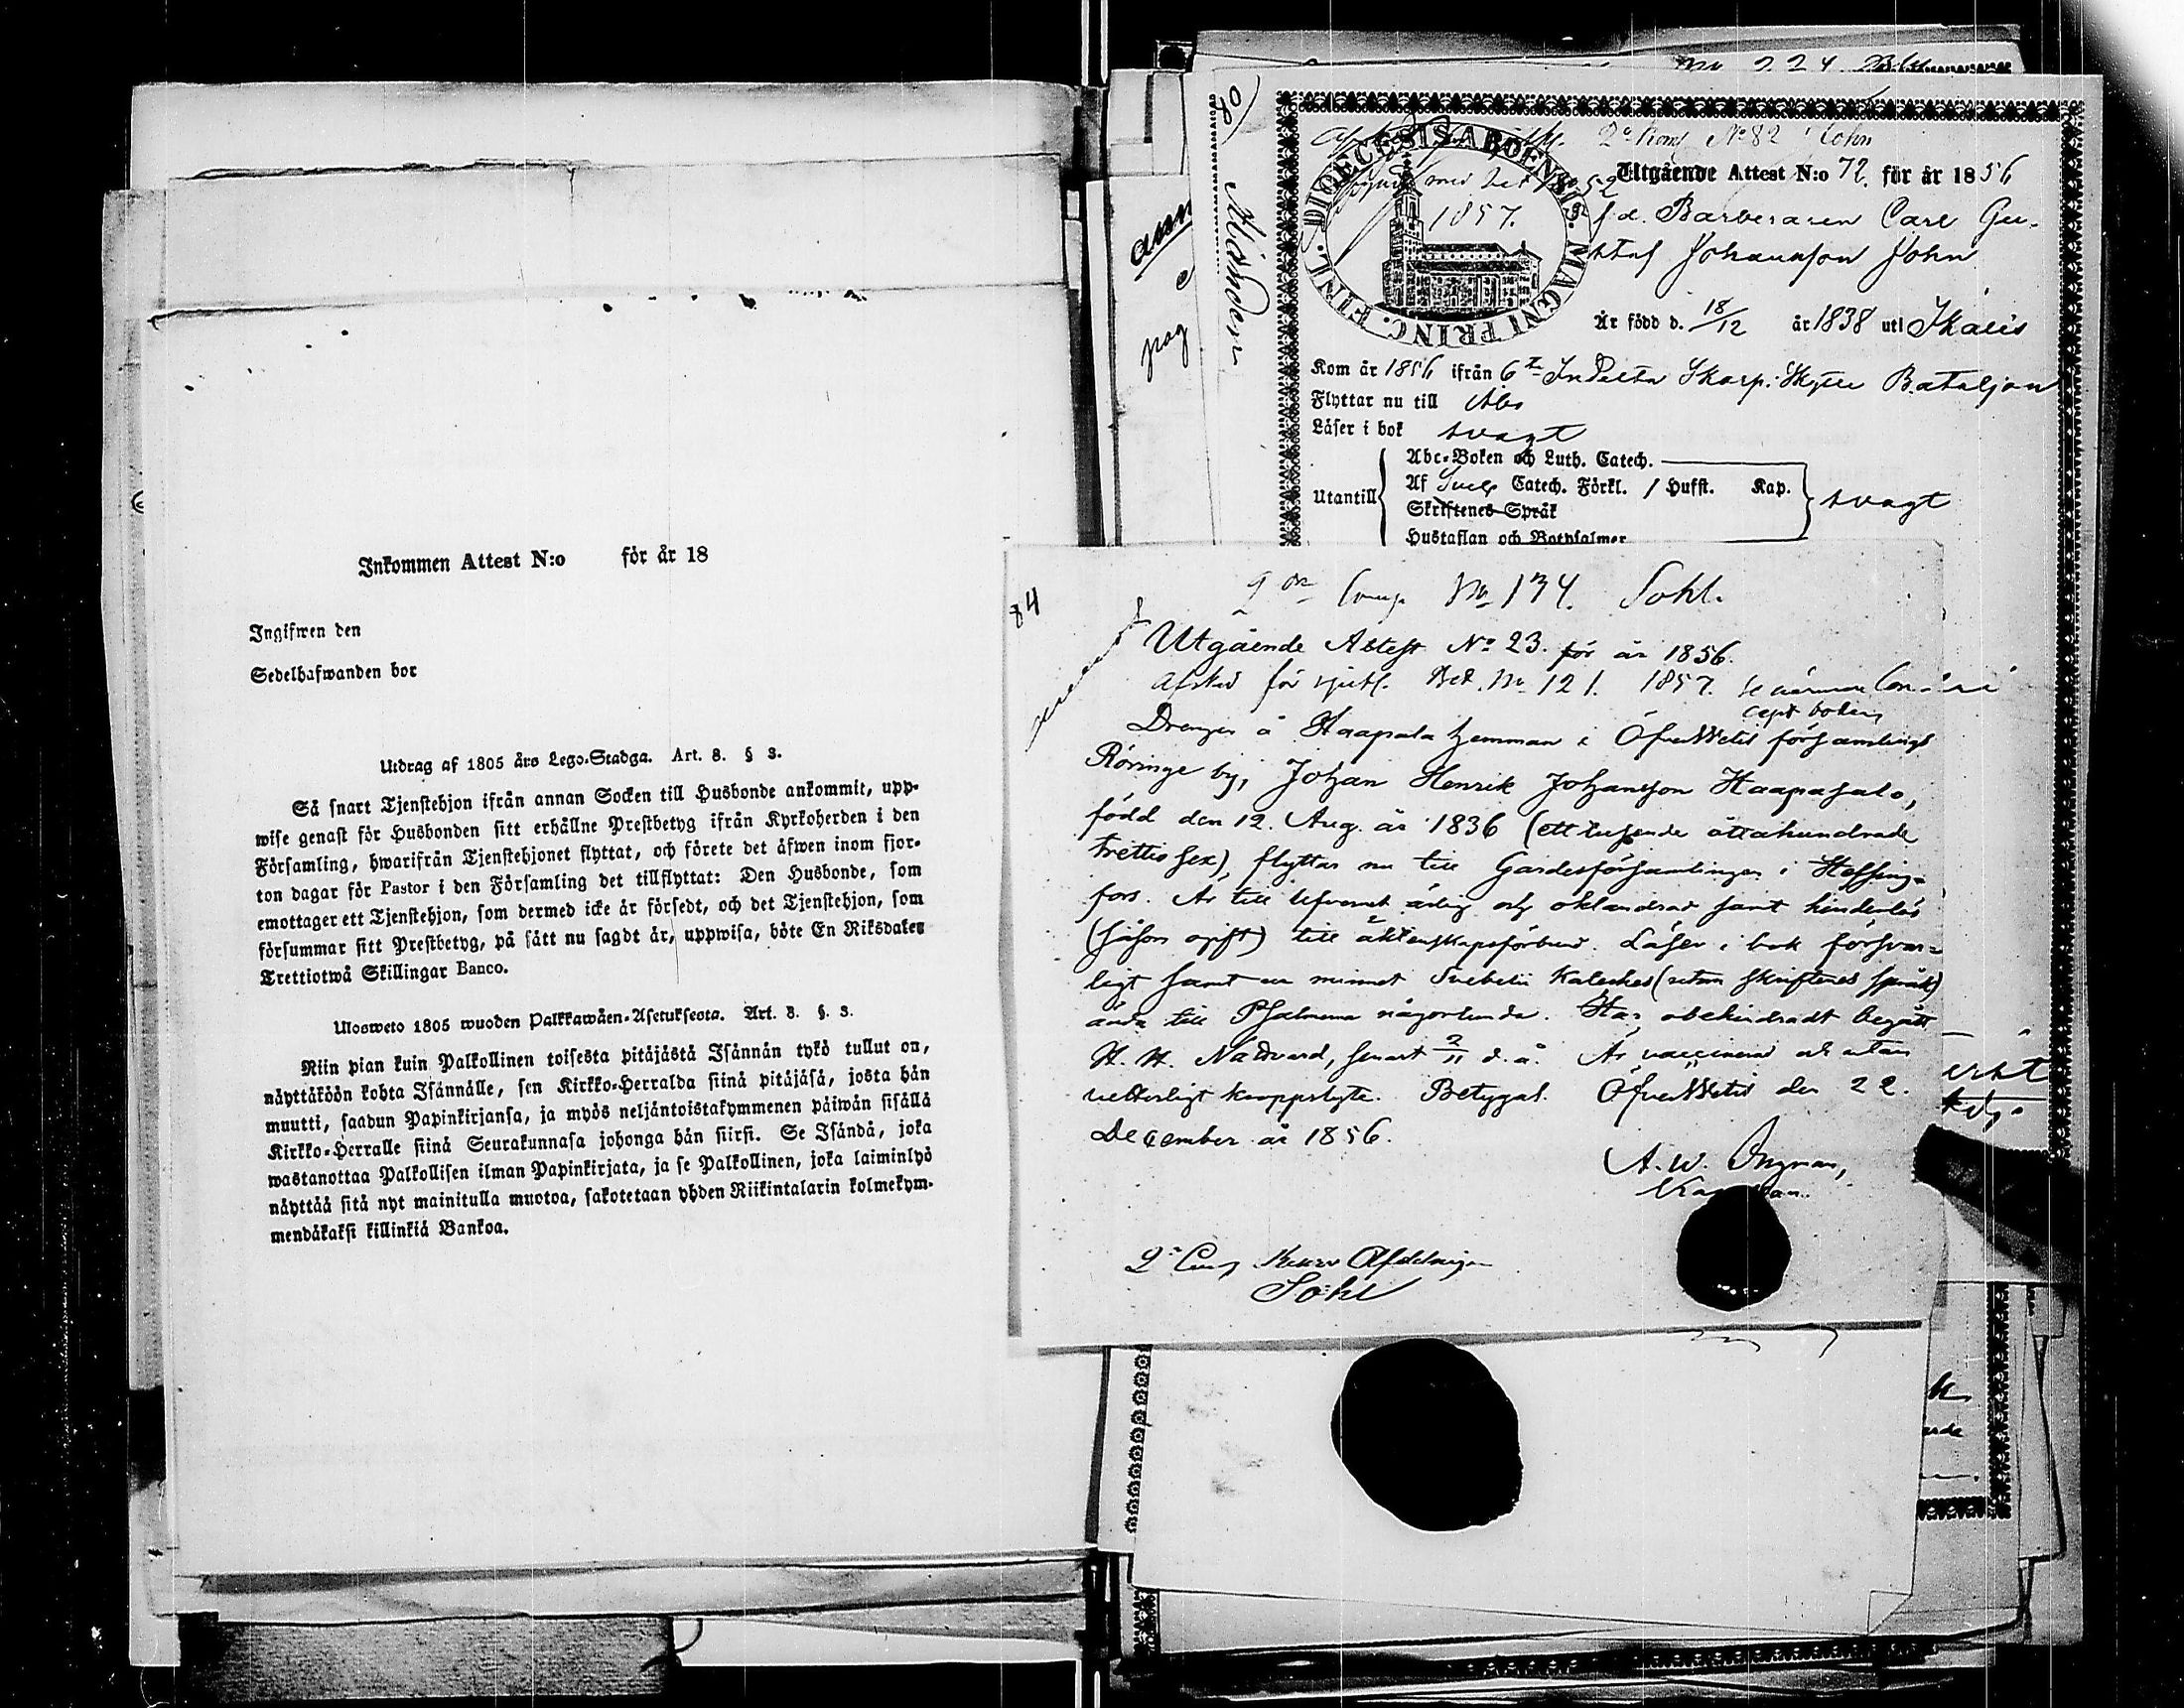 Inkommen Attest N:o för år 18
Ingifwen den
Sedelhafwanden bor
Utdrag af 1805 års Lego-Stadga. Art. 8. § 3.
Så snart Tjenstehjon ifrån annan Socken till Husbonde ankommit, upp-
wise genast för Husbonden sitt erhållne Prestbetyg ifrån Kyrkoherden i den
Församling, hwarifrån Tjenstehjonet flyttat, och förete det äfwen inom fjor-
ton dagar för Pastor i den Församling det tillflyttat: Den Husbonde, som
emottager ett Tjenstehjon, som dermed icke är försedt, och det Tjenstehjon, som
försummar sitt Prestbetyg, på sätt nu sagdt är, uppwisa, böte En Riksdaler
Trettiotwå Skillingar Banco.
Ulosweto 1805 wuoden Palkkawäen-Asetuksesta. Art. 8. §. 3.
Niin pian kuin Palkollinen toisesta pitäjästä Isännän tykö tullut on,
näyttäköön kohta Isännälle, sen Kirkko-Herralda siinä pitäjäsä, josta hän
muutti, saadun Papinkirjansa, ja myös neljäntoistakymmenen päiwän sisällä
Kirkko-Herralle siinä Seurakunnasa johonga hän siirsi. Se Isändä, joka
wastanottaa Palkollisen ilman Papinkirjata, ja se Palkollinen, joka laiminlyö
näyttää sitä nyt mainitulla muotoa, sakotetaan yhden Riikintalarin kolmekym-
mendäkaksi killinkiä Bankoa.
80)
DIOECESIS ABOENSIS. MAGNI PRINC. FINL.
2a Komp No 82 John
med Bet No 52
1857.
Utgående Attest N:o 72 för år 1856
f.d. Barberaren Carl Gu-
staf Johansson John
Är född d. 18/12 år 1838 uti Ikalis
Kom år 1856 ifrån 6te Indelta Skarp. Skytte Bataljon
Flyttar nu till Åbo
Läser i bok svagt
Utantill
Abc-Boken och Luth. Catech.
Af Sveb Catech. Förkl. / Hufst. Kap.
Skriftenes Språk
Hustaflan och Botpsalmer
svagt
84
2dra Comp. No 134. Sohl.
Utgående Attest No 23. för år 1856.
Afsked för sjukl. Bet. No 121. 1857. se närmare Con-
cept boken
Drengen å Haapala hemman i Öfvervetil församlings
Röringe by, Johan Henrik Johansson Haapasalo,
född den 12. Aug. år 1836 (ett tusende åttahundrade
trettio sex), flyttar nu till Gardesförsamlingen i Helsing-
fors. Är till lefvernet ärlig och oklandrad samt hinderlös
(såsom ogift) till äktenskapsförbund. Läser i bok försvar-
ligt samt ur minnet Svebelii Kateches (utom skriftenes språk)
ända till Psalmerna någorlunda. Har obehindradt begått
H. H. Nattvard, senast 2/11 d. å. Är vaccinerad och utan
vetterligt kroppslyte. Betygat. Öfvervetil den 22.
December år 1856.
A. W. Ingman,
2a Comp Reserv Afdelningen
Sohl